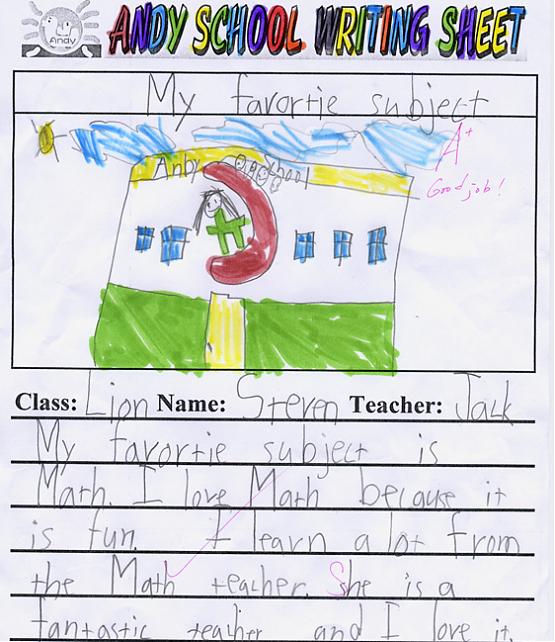 Andy
ANDY SCHOOL WRITING SHEET
My favortie subject
A+
Good job!
Anby School
Class: Lion Name: Steven Teacher: Jack
My favortie subject is
Math. I love Math because it
is fun. I learn a lot from
the Math teacher. She is a
fantastic teacher and I love it.